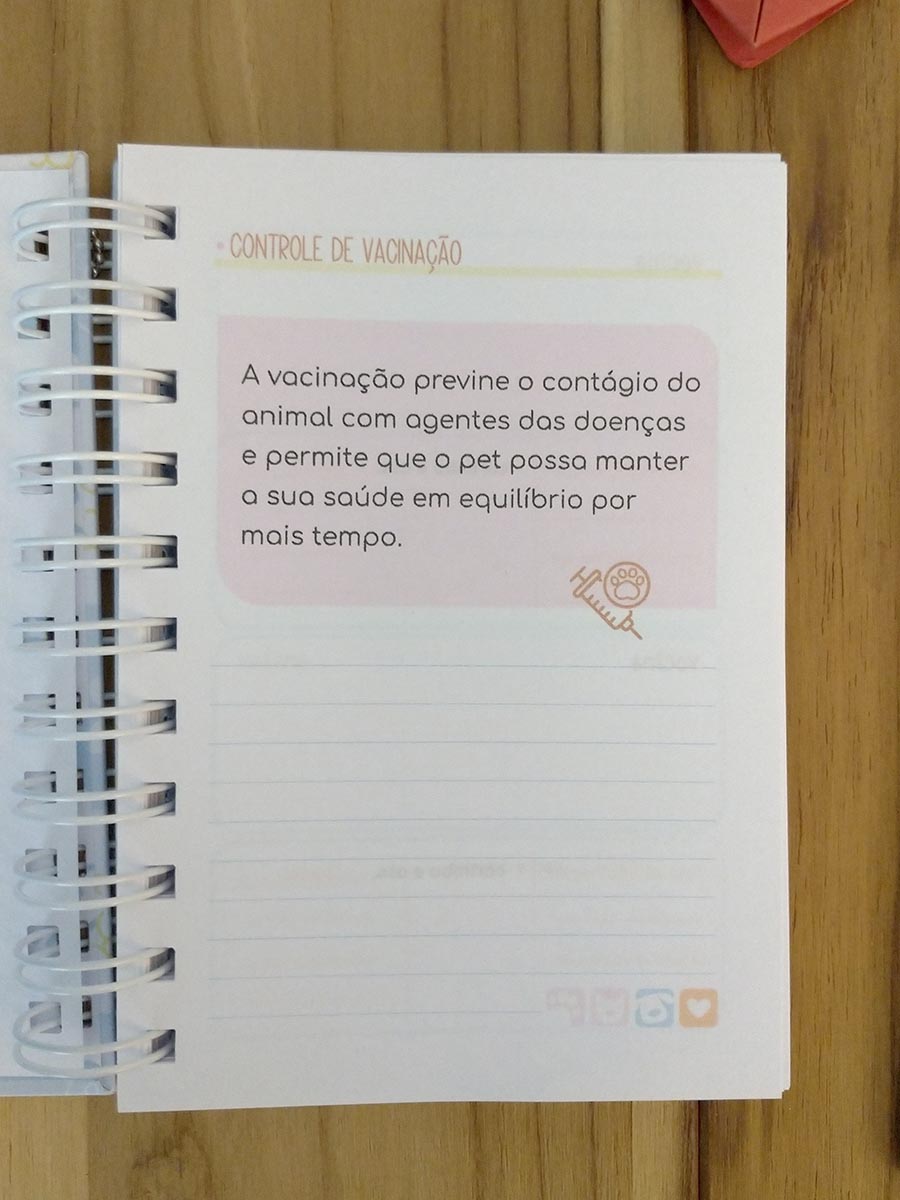 CONTROLE DE VACINAÇÃO
A vacinação previne o contágio do
animal com agentes das doenças
e permite que o pet possa manter
a sua saúde em equilíbrio por
mais tempo.